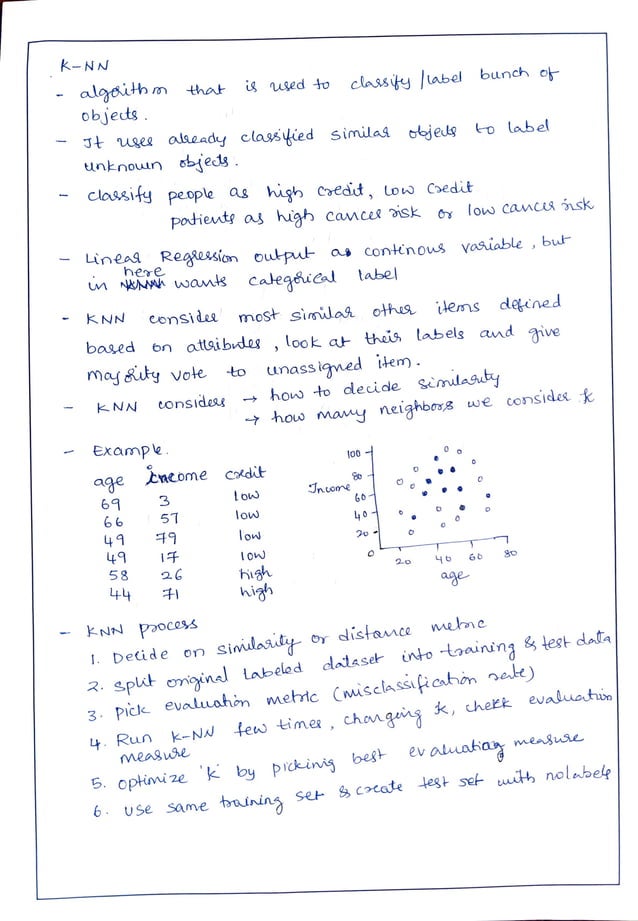 K-NN
- algorithm that is used to classify/label bunch of
objects.
- It uses already classified similar objects to label
unknown objects.
- classify people as high credit, low credit
patients as high cancer risk or low cancer risk
- Linear Regression output as continous variable, but
here
in wants categorical label
- KNN consider most similar other items defined
based on attributes, look at their labels and give
majority vote to unassigned item.
- KNN considers → how to decide similarity
→ how many neighbors we consider k
- Example.
age income credit
69 3 low
66 57 low
49 79 low
49 17 low
58 26 high
44 71 high
100
80
Income
60
40
20
0
20 40 60 80
age
- KNN process
1. Decide on similarity or distance metric
2. split original labeled dataset into training & test data
3. pick evaluation metric (misclassification rate)
4. Run K-NN few times, changing k, chekk evaluation
measure
5. optimize 'k' by picking best evaluating measure
6. use same training set & create test set with no labels